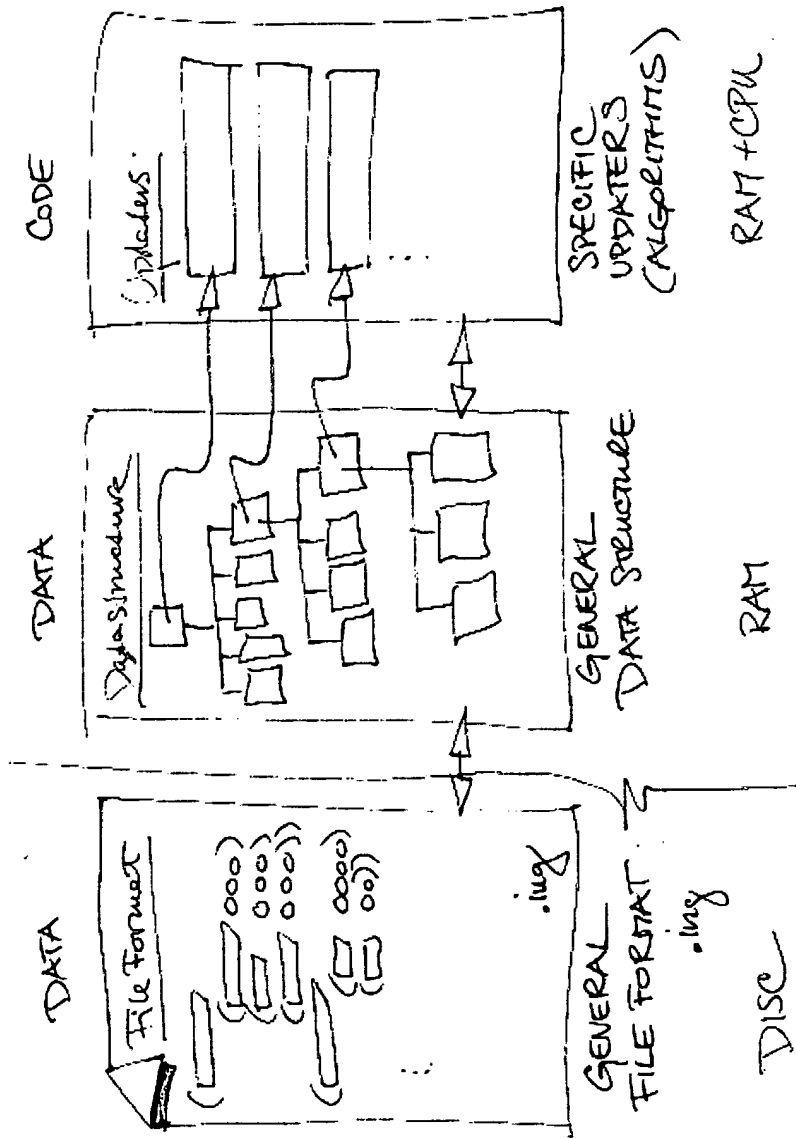 DATA
File Format
( (     ooo)
(     ooo)
(     ooo))
( (     oooo)
(     oo))
...
.ing
GENERAL
FILE FORMAT
.ing
DISC
DATA
Data structure
GENERAL
DATA STRUCTURE
RAM
CODE
Updaters.
...
SPECIFIC
UPDATERS
(ALGORITHMS)
RAM + CPU